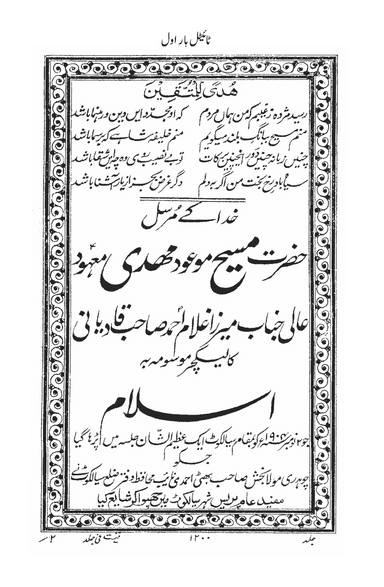 ٹائیٹل بار اول
ھُدًی لِّلْمُتَّقِیْنَ
رسید مژدہ ز غیبم کہ من ہماں مردم
کہ او مجدد ایں دین و رہنما باشد
منم مسیح ببانگ بلند میگویم
منم خلیفہ شاہے کہ بر سما باشد
چنیں زمانہ چنیں دور ایں چنیں برکات
تو بے نصیب روی وہ چہ ایں شقا باشد
خدا کے مُرسل
حضرت مسیح موعود مہدی معہود
عالی جناب میرزا غلام احمد صاحب قادیانی
کا لیکچر موسومہ بہ
اسلام
جو ۲ نومبر ۱۹۰۴ء کو بمقام سیالکوٹ ایک عظیم الشان جلسہ میں پڑھا گیا
جسکو
چوہدری مولا بخش صاحب بھٹی احمدی نائب محافظ دفتر ضلع سیالکوٹ نے
مفید عام پریس شہر سیالکوٹ میں چھپوا کر شایع کیا
جلد ۱۲۰۰ قیمت فی جلد ۲